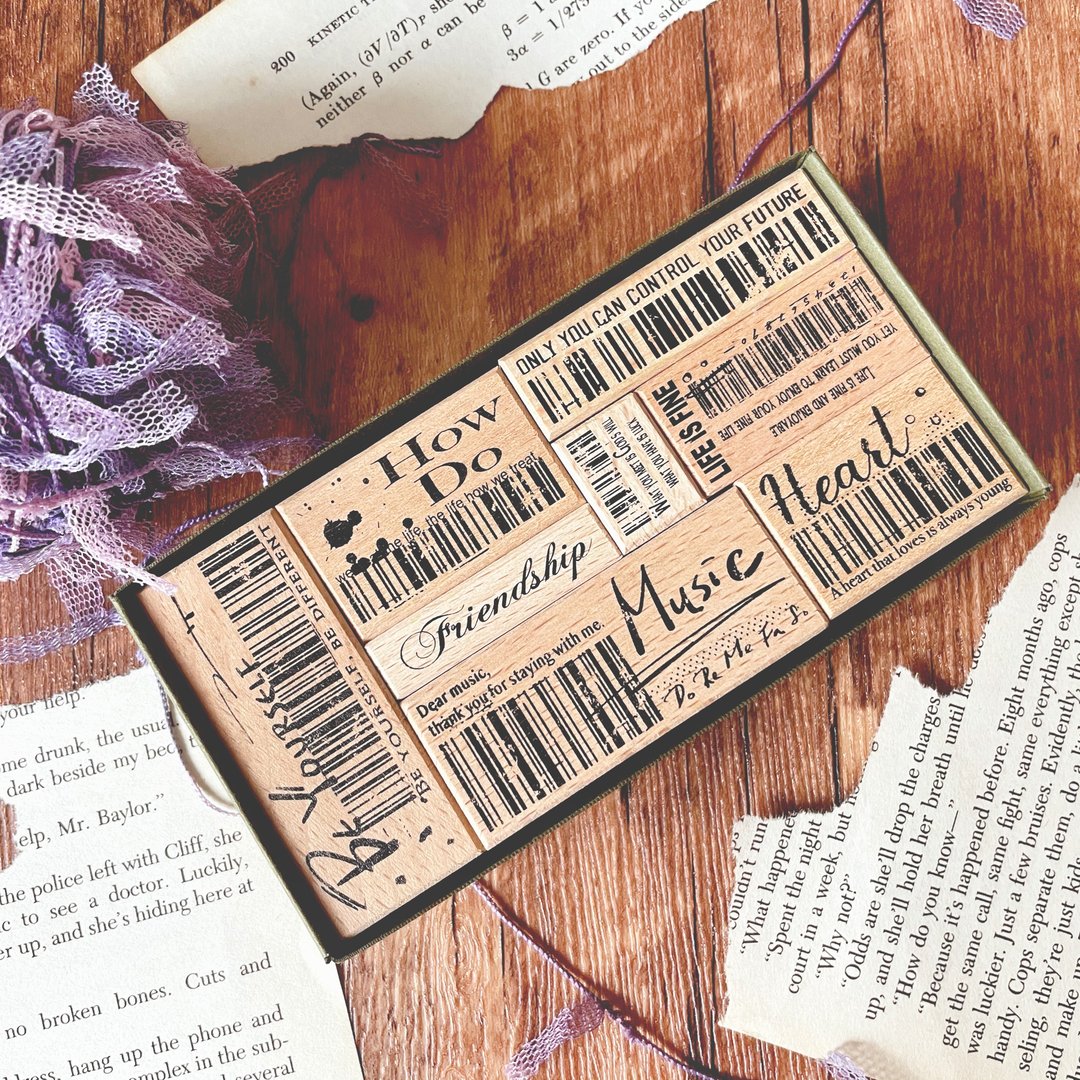 200 KINETIC
(Again, (∂V/∂T)P
neither β nor α can be
β = 1
3α = 1/273
G are zero. If you
out to the side
ONLY YOU CAN CONTROL YOUR FUTURE
LIFE IS FINE
LIFE IS FINE AND ENJOYABLE
YET YOU MUST LEARN TO ENJOY YOUR FINE LIFE
How
Do
the life how we treat
WHAT YOU MEET IS GOD'S WILL
WHAT YOU HAVE IS LUCK
Heart
A heart that loves is always young
Friendship
Music
Dear music,
thank you for staying with me.
Do Re Me Fa
BE YOURSELF
BE YOURSELF BE DIFFERENT
your help.
me drunk, the usual
dark beside my bed,
elp, Mr. Baylor.”
the police left with Cliff, she
to see a doctor. Luckily,
er up, and she’s hiding here at
no broken bones. Cuts and
hang up the phone and
complex in the sub-
several
“What happened
“Spent the night
court in a week, but
“Why not?”
“Odds are she’ll drop the charges
up, and she’ll hold her breath until
“How do you know—”
“Because it’s happened before. Eight months ago, cops
get the same call, same fight, same everything except
was luckier. Just a few bruises. Evidently, the
handy. Cops separate them, do a
seling, they’re just kid
and make up